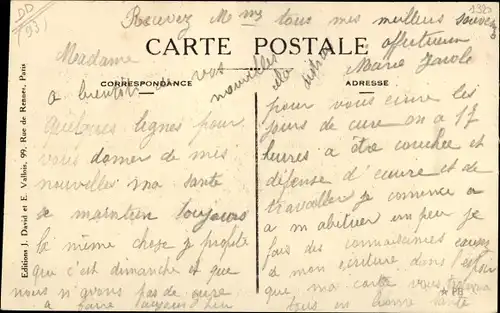 DD
(93)
1325
Recevez Mme tous mes meilleurs souvenirs
affectueux
CARTE POSTALE
Marie
CORRESPONDANCE
ADRESSE
a bientôt vos nouvelles
Madame
quelques lignes pour
vous donner de mes
nouvelles ma sante
se maintien toujours
la même chose je profite
que c'est dimanche et que
nous n'avons pas de cure
a faire
pour vous
jours de cure on a 17
heures a être couchee et
défense d' et de
travailler je comence a
m abituer un peu je
fais des connaissances
mon dans l'espoir
que ma carte vous trouvera
tous en bonne sante
Editions J. David et E. Vallois, 99, Rue de Rennes, Paris
★ PB